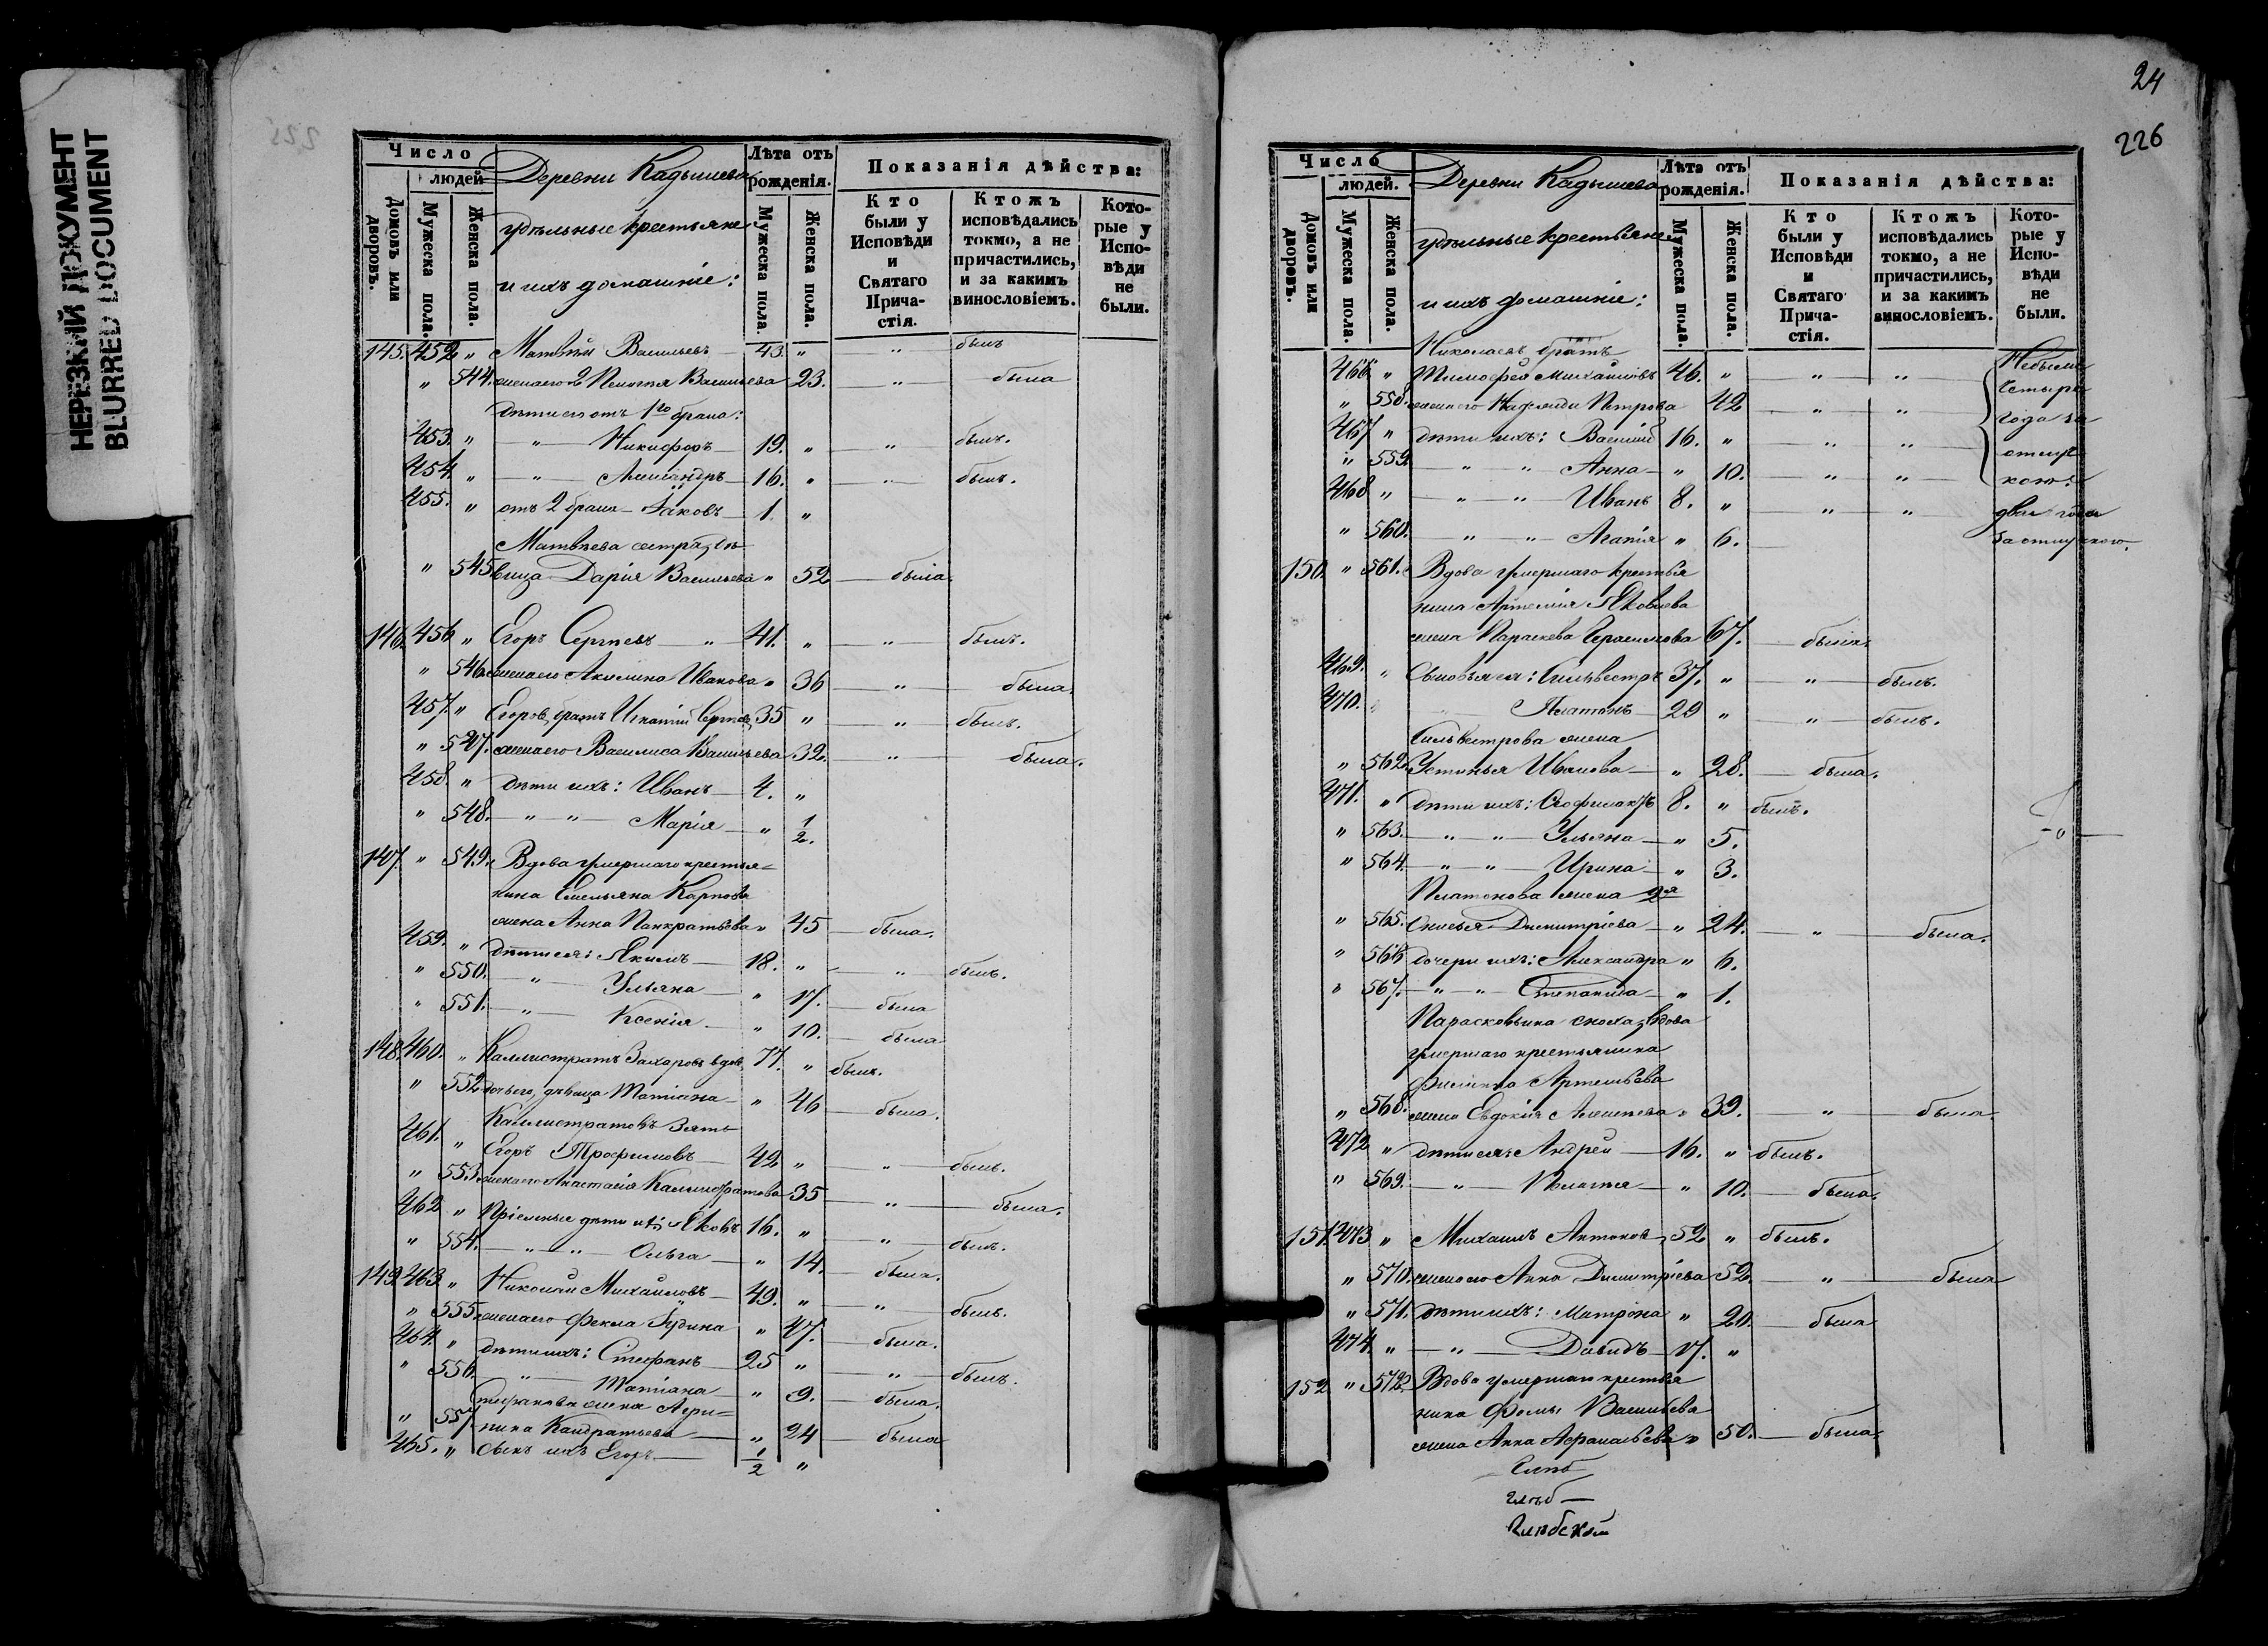 НЕРЕЗКИЙ ДОКУМЕНТ
BLURRED DOCUMENT
225
Число
людей
Домовъ или дворовъ.
Мужеска пола.
Женска пола.
Деревни Кадышева
удѣльные крестьяне
и ихъ домашніе:
Лѣта отъ рожденія.
Мужеска пола.
Женска пола.
Показанія дѣйства:
Кто были у Исповѣди и Святаго Прича-стія.
Ктожъ исповѣдались токмо, а не причастились, и за какимъ винословіемъ.
Кото-рые у Испо-вѣди не были.
145. 452 " Матвѣй Васильевъ — 43. " " былъ
" 544. жена его 2 Пелагья Васильева 23. — " — была
дѣти его отъ 1го брака:
453. " — " — Никифоръ — 19. " — " былъ.
454. " — " — Александръ — 16. " — " былъ.
455. " отъ 2 брака — Іаковъ — 1. "
Матвѣева сестра, дѣ-
" 545 вица Дарія Васильева " 52 — была.
146. 456 " Егоръ Сергѣевъ — " — 41. " — " — былъ.
" 546. жена его Акилина Иванова " 36 — " — была.
457. " Егоровъ братъ Игнатій Сергѣевъ 35 " — " — былъ.
" 547. жена его Василиса Васильева 32. — " — была.
458. " дѣти ихъ: Иванъ — 4. "
" 548. — " — " — Марія — " 1/2.
147. " 549. Вдова умершаго крестья-
нина Емельяна Карпова
жена Анна Панкратьева " 45 — была.
459. " дѣти ея: Якимъ — 18. " — " — былъ.
" 550. — " — Ульяна — " 17. — была
" 551. — " — Ксенія — " 10. — была
148. 460. " Каллистратъ Захаровъ вдов. 77. " былъ.
" 552 дочь его, дѣвица Татіана — " 46 — была.
Каллистратовъ Зять
461. " Егоръ Трофимовъ — 42 " — " — былъ.
" 553. жена его Анастасія Каллистратова 35 — " — была.
462 " Пріемные дѣти ихъ Яковъ 16. " — " — былъ.
" 554. — " — " — Ольга — " 14. — была.
149. 463 " Николай Михайловъ — 49. " — " — былъ.
" 555. жена его Фекла Іудина " 47. — была.
464. " дѣти ихъ: Стефанъ — 25 " — " — былъ.
" 556. — " — Татіана — " 9. — была.
Стефанова жена Агри-
" 557 пина Кандратьева — " 24 — была
465. " Сынъ ихъ Егоръ — 1/2 "
24
226
Число
людей.
Домовъ или дворовъ.
Мужеска пола.
Женска пола.
Деревни Кадышева
удѣльные крестьяне
и ихъ домашніе:
Лѣта отъ рожденія.
Мужеска пола.
Женска пола.
Показанія дѣйства:
Кто были у Исповѣди и Святаго Прича-стія.
Ктожъ исповѣдались токмо, а не причастились, и за какимъ винословіемъ.
Кото-рые у Испо-вѣди не были.
Николаевъ братъ
466 " Тимофей Михайловъ 46. " — " — " — Небыли
" 558. жена его Надежда Петрова 42 — " — " четыре
467 " дѣти ихъ: Василій 16. " — " — " года за
" 559 — " — " — Анна — " 10. — " — " отлуч
468 " — " — " — Иванъ 8. " — " — " кою.
" 560. — " — " — Агапія " 6. два года за отлучкою.
150. " 561. Вдова умершаго крестья
нина Артемія Яковлева
жена Параскева Герасимова 67. — была.
469. " Сыновья ея: Сильвестръ 37. " — " — былъ.
470. " Платонъ — 29 " — " — былъ.
Сильвестрова жена
" 562. Устинья Иванова — " 28. — была.
471. " дѣти ихъ: Феофилактъ 8. " былъ.
" 563. — " — " — Ульяна — " 5.
" 564. — " — " — Ирина — " 3.
Платонова жена 2я
" 565. Дмитріева — " 24. — " — была.
" 566 дочери ихъ: Александра " 6.
" 567. — " — " — Степанида — " 1.
Парасковьина сноха, вдова
умершаго крестьянина
Филиппа Артемьева
" 568. жена Евдокія Алексѣева " 39. — " — была.
472 " дѣти ея: Андрей — 16. " былъ.
" 569. — " — Пелагья — " 10. — была.
151. 473 " Михаилъ Антоновъ 52 " былъ.
" 570. жена его Анна Димитріева 52. — " — была
" 571. дѣти ихъ: Матрона " 20. — была
474. " — " — Давидъ — 17. "
152 " 572. Вдова умершаго крестья
нина Фомы Васильева
жена Анна Афанасьева " 50. — была.